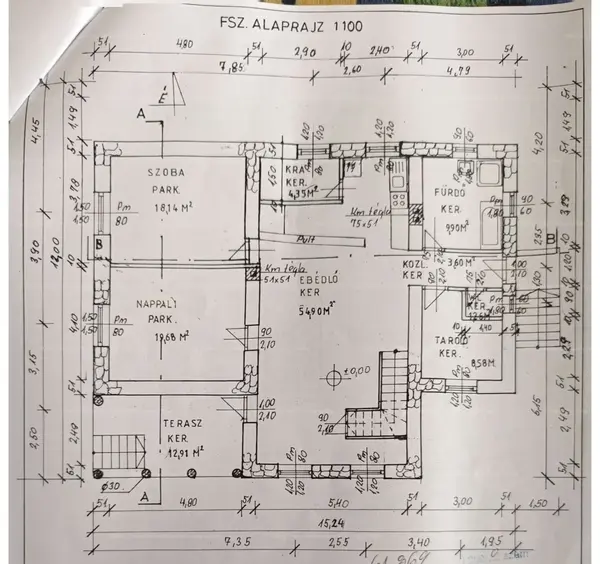 FSZ. ALAPRAJZ 1:100
51 4,80 51 2,90 10 2,40 51 3,00 51
7,85 2,60 4,79
É
A
SZOBA
PARK.
18,14 M²
KRA
KER.
4,35 M²
FÜRDŐ
KER.
9,90 M²
Km tégla
75x51
Pult
Km tégla
51x51
KÖZL.
KER
3,60 M²
EBÉDLŐ
KER
54,90 M²
NAPPALI
PARK.
19,68 M²
WC
KER.
TÁROLÓ
KER.
8,58 M²
±0,00
TERASZ
KER.
12,91 M²
Ø30
A
B
B
Pm
80
Pm
80
1,50
1,50
1,50
1,50
90
2,10
1,00
2,10
90
2,10
1,00
2,10
4,45
3,90
3,15
2,50
12,00
51
1,49
51
3,78
10
4,10
51
2,40
51
4,20
2,85
6,15
51
1,49
51
2,49
51
51 4,80 51 5,40 51 3,00 51 1,50
15,24
7,35 2,55 3,40 1,95